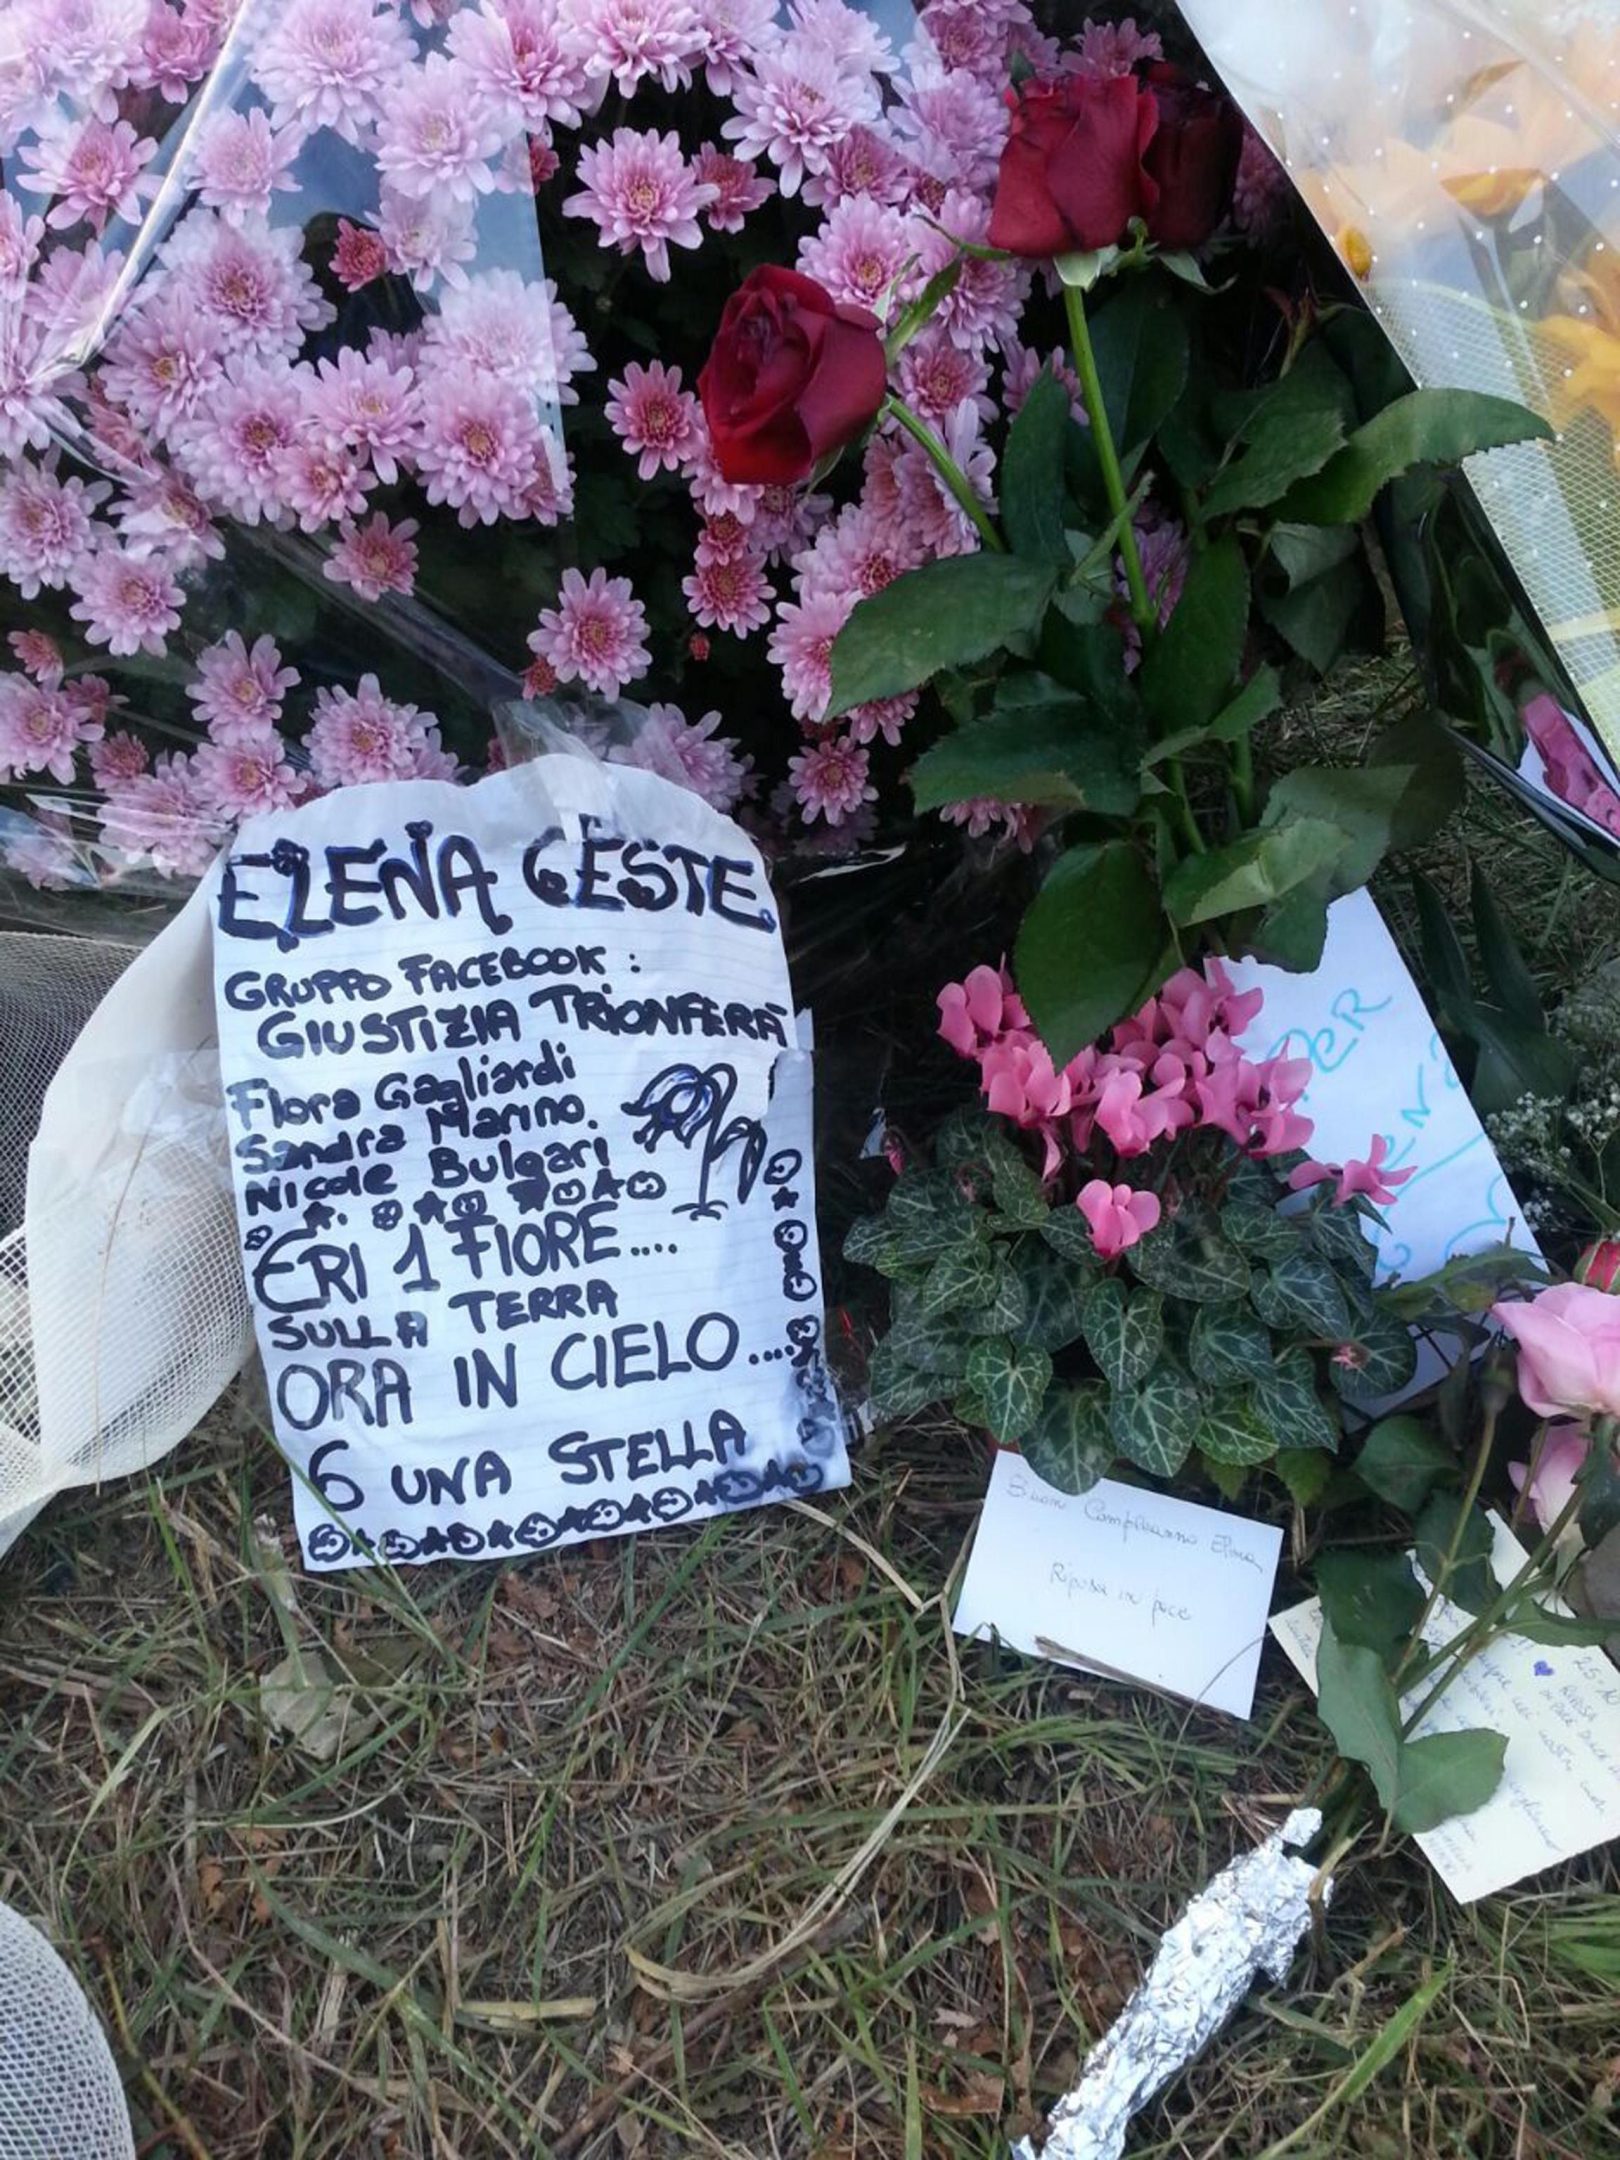 ELENA CESTE.
GRUPPO FACEBOOK:
GIUSTIZIA TRIONFERÀ
Flora Gagliardi
Sandra Marino
Nicole Bulgari
ERI 1 FIORE....
SULLA TERRA
ORA IN CIELO....
6 UNA STELLA
PER
Buon Compleanno Elena
Riposa in pace
RIPOSA